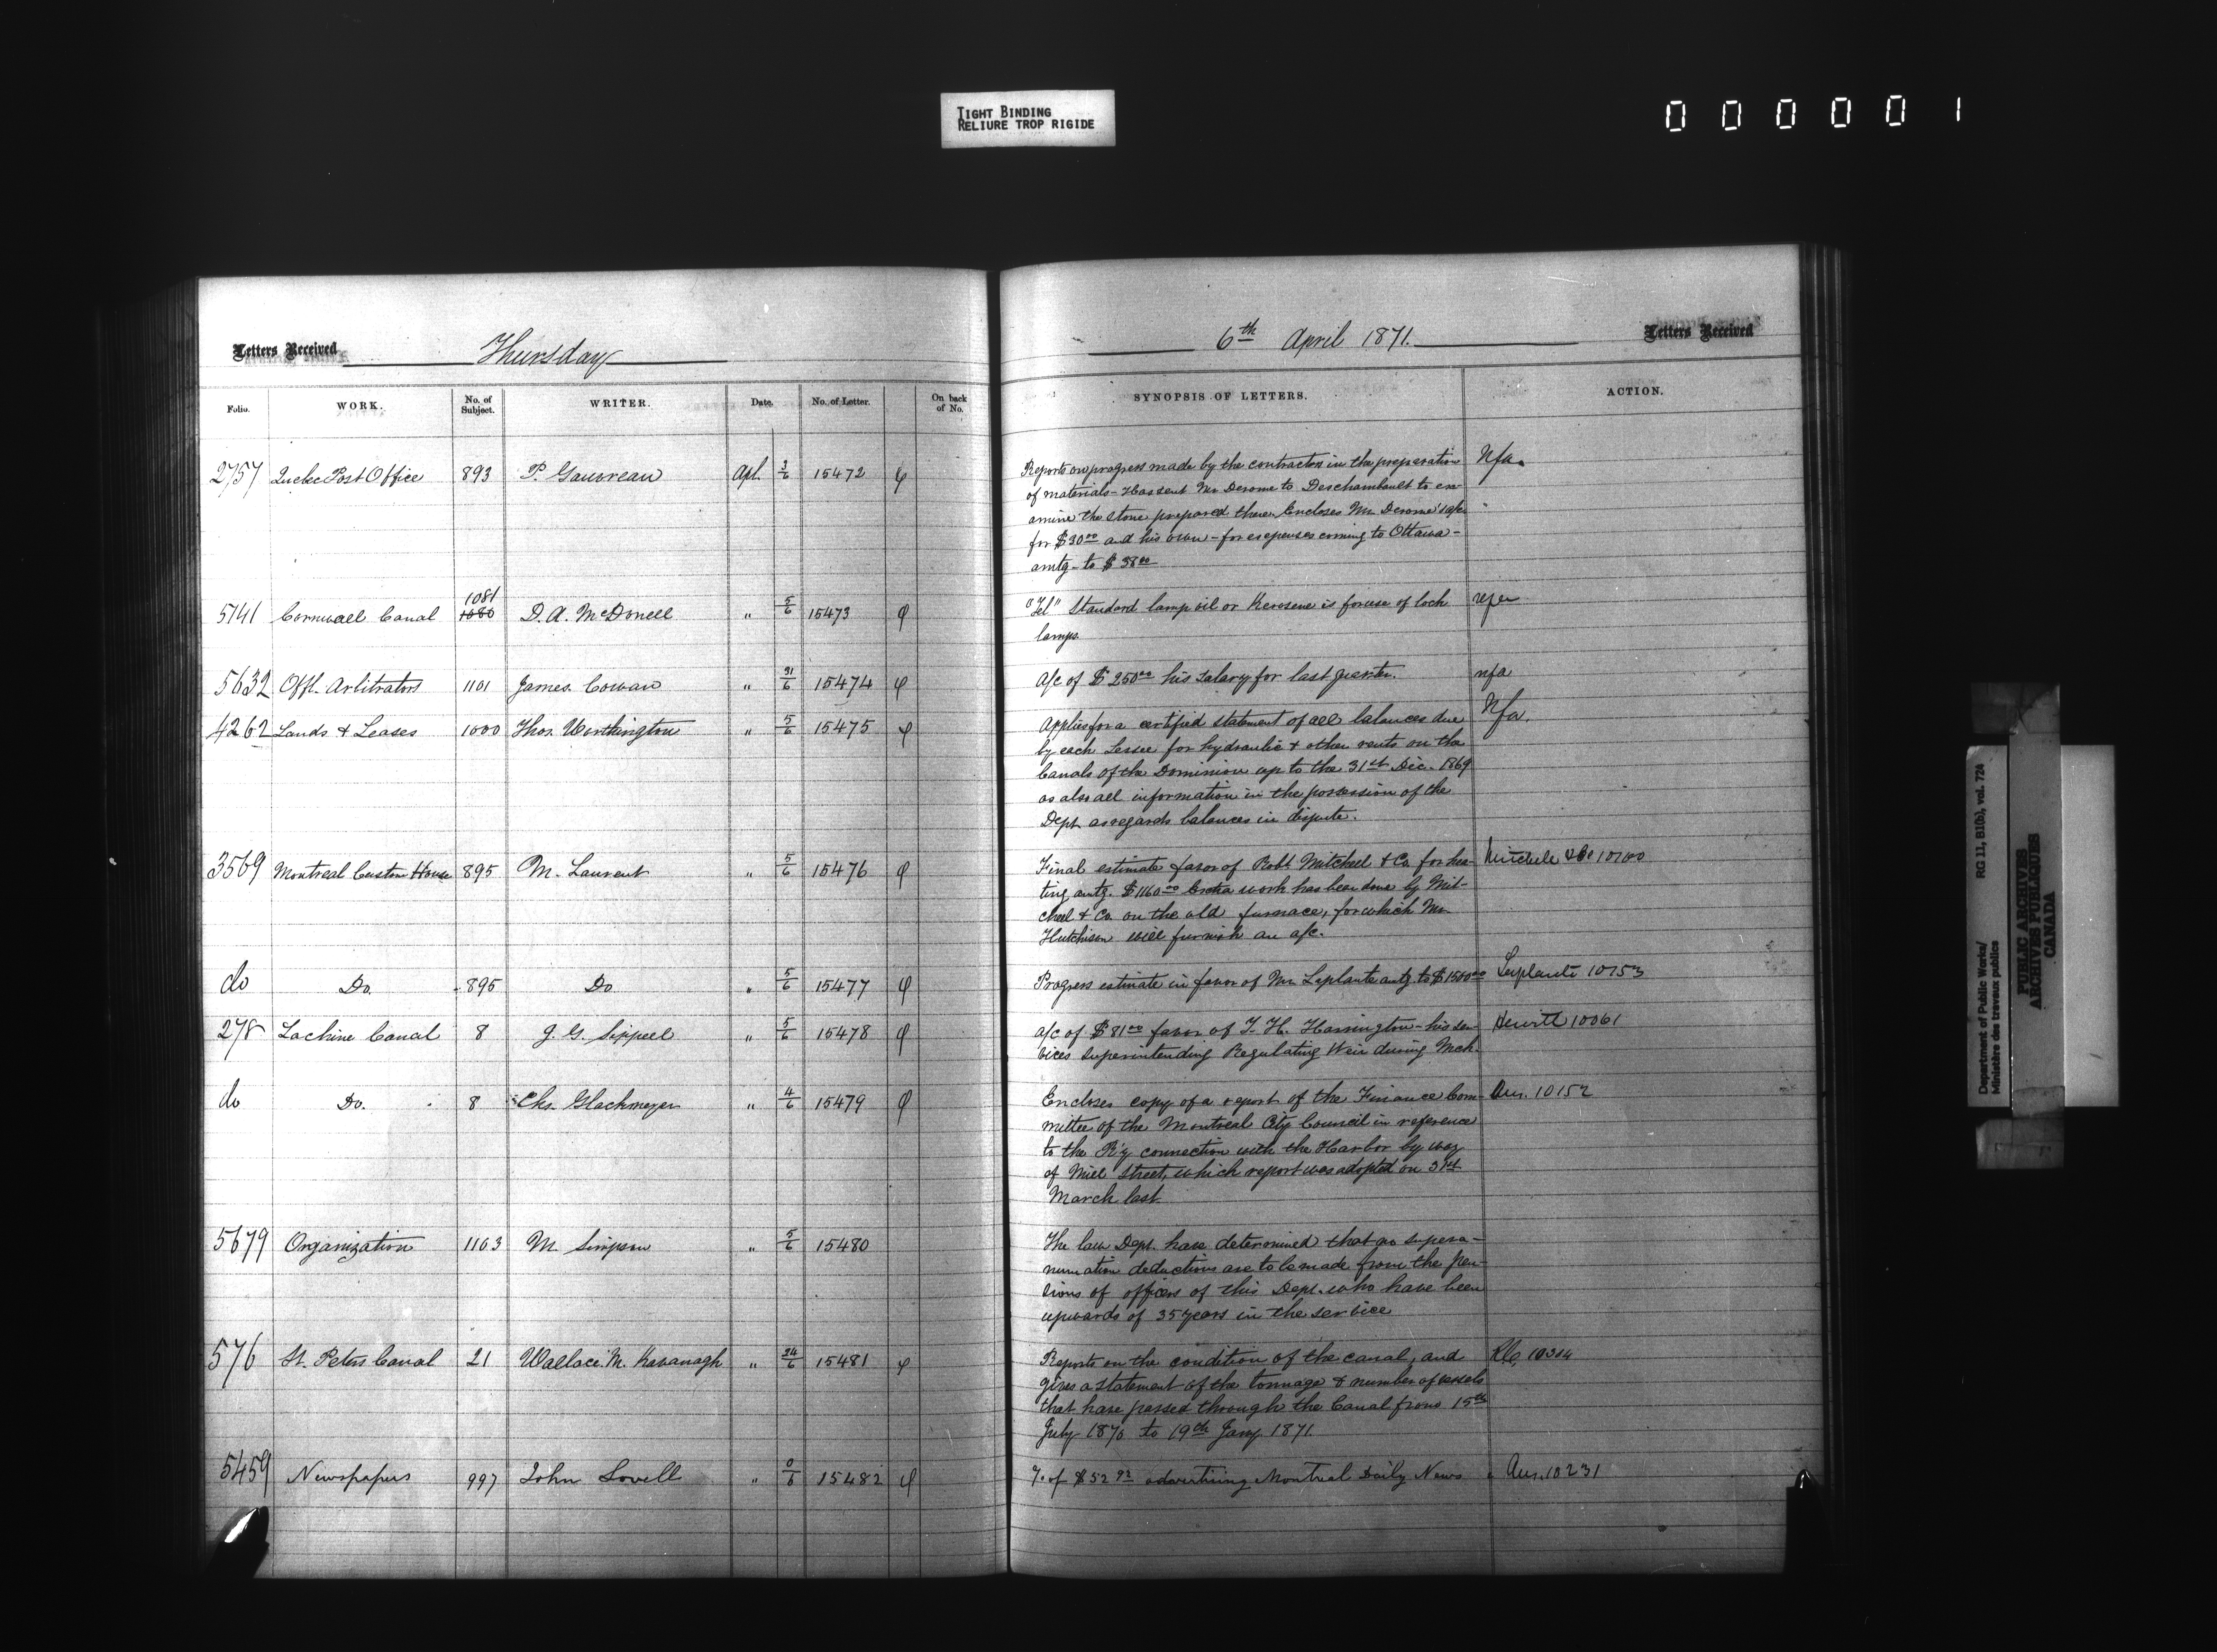 TIGHT BINDING
RELIURE TROP RIGIDE
000001
Letters Received Thursday
6th April 1871. Letters Received
Folio. WORK. No. of Subject. WRITER. Date. No. of Letter. On back of No.
SYNOPSIS OF LETTERS. ACTION.
2757 Quebec Post Office 893 P. Gauvreau Apl. 3/6 15472
Reports on progress made by the contractors in the preparation Nfa.
of materials - Has sent Mr Derome to Deschambault to ex-
amine the stone prepared there. Encloses Mr. Derome's a/c
for $30 00 and his own - for expenses coming to Ottawa -
amtg - to $38 00
5141 Cornwall Canal 1081 1080 D. A. McDonell " 5/6 15473
"Tel" Standard lamp oil or Kerosene is for use of lock
lamps.
5632 Offl. Arbitrators 1101 James Cowan " 31/6 15474
A/c of $250 00 his salary for last quarter. nfa
4262 Lands & Leases 1000 Thos. Worthington " 5/6 15475
Applies for a certified statement of all balances due Nfa.
by each Lessee for hydraulic & other rents on the
Canals of the Dominion up to the 31st Dec. 1869
as also all information in the possession of the
Dept. as regards balances in dispute.
3569 Montreal Custom House 895 M. Laurent " 5/6 15476
Final estimate favor of Robt Mitchell & Co. for hea-
ting amtg. $1160 00 Extra work has been done by Mit-
chell & Co. on the old furnace, for which Mr.
Hutchison will furnish an a/c.
do Do. 895 Do " 5/6 15477
Progress estimate in favor of Mr. Laplante amtg. to $1500 00 Laplante 10153
278 Lachine Canal 8 J. G. Sippell " 5/6 15478
a/c of $81 00 favor of T. H. Harrington - his ser- Hewitt 10061
vices superintending Regulating Weir during Mch.
do Do. 8 Chs. Glackmeyer " 4/6 15479
Encloses copy of a report of the Finance Com- Ans. 10152
mittee of the Montreal City Council in reference
to the R'y connection with the Harbor by way
of Mill Street, which report was adopted on 31st
March last.
5679 Organization 1103 M. Simpson " 5/6 15480
The law Dept. have determined that no supera-
nnuation deductions are to be made from the pen-
sions of officers of this Dept. who have been
upwards of 35 years in the service
576 St. Peters Canal 21 Wallace M. Kavanagh " 24/6 15481
Reports on the condition of the canal, and
gives a statement of the tonnage & number of vessels
that have passed through the Canal from 15th
July 1870 to 19th Jany. 1871.
5459 Newspapers 997 John Lovell " 0/6 15482
of $52 92 advertising Montreal Daily News Ans. 10231
Department of Public Works/
Ministère des travaux publics
RG 11, B1(b), vol. 724
PUBLIC ARCHIVES
ARCHIVES PUBLIQUES
CANADA